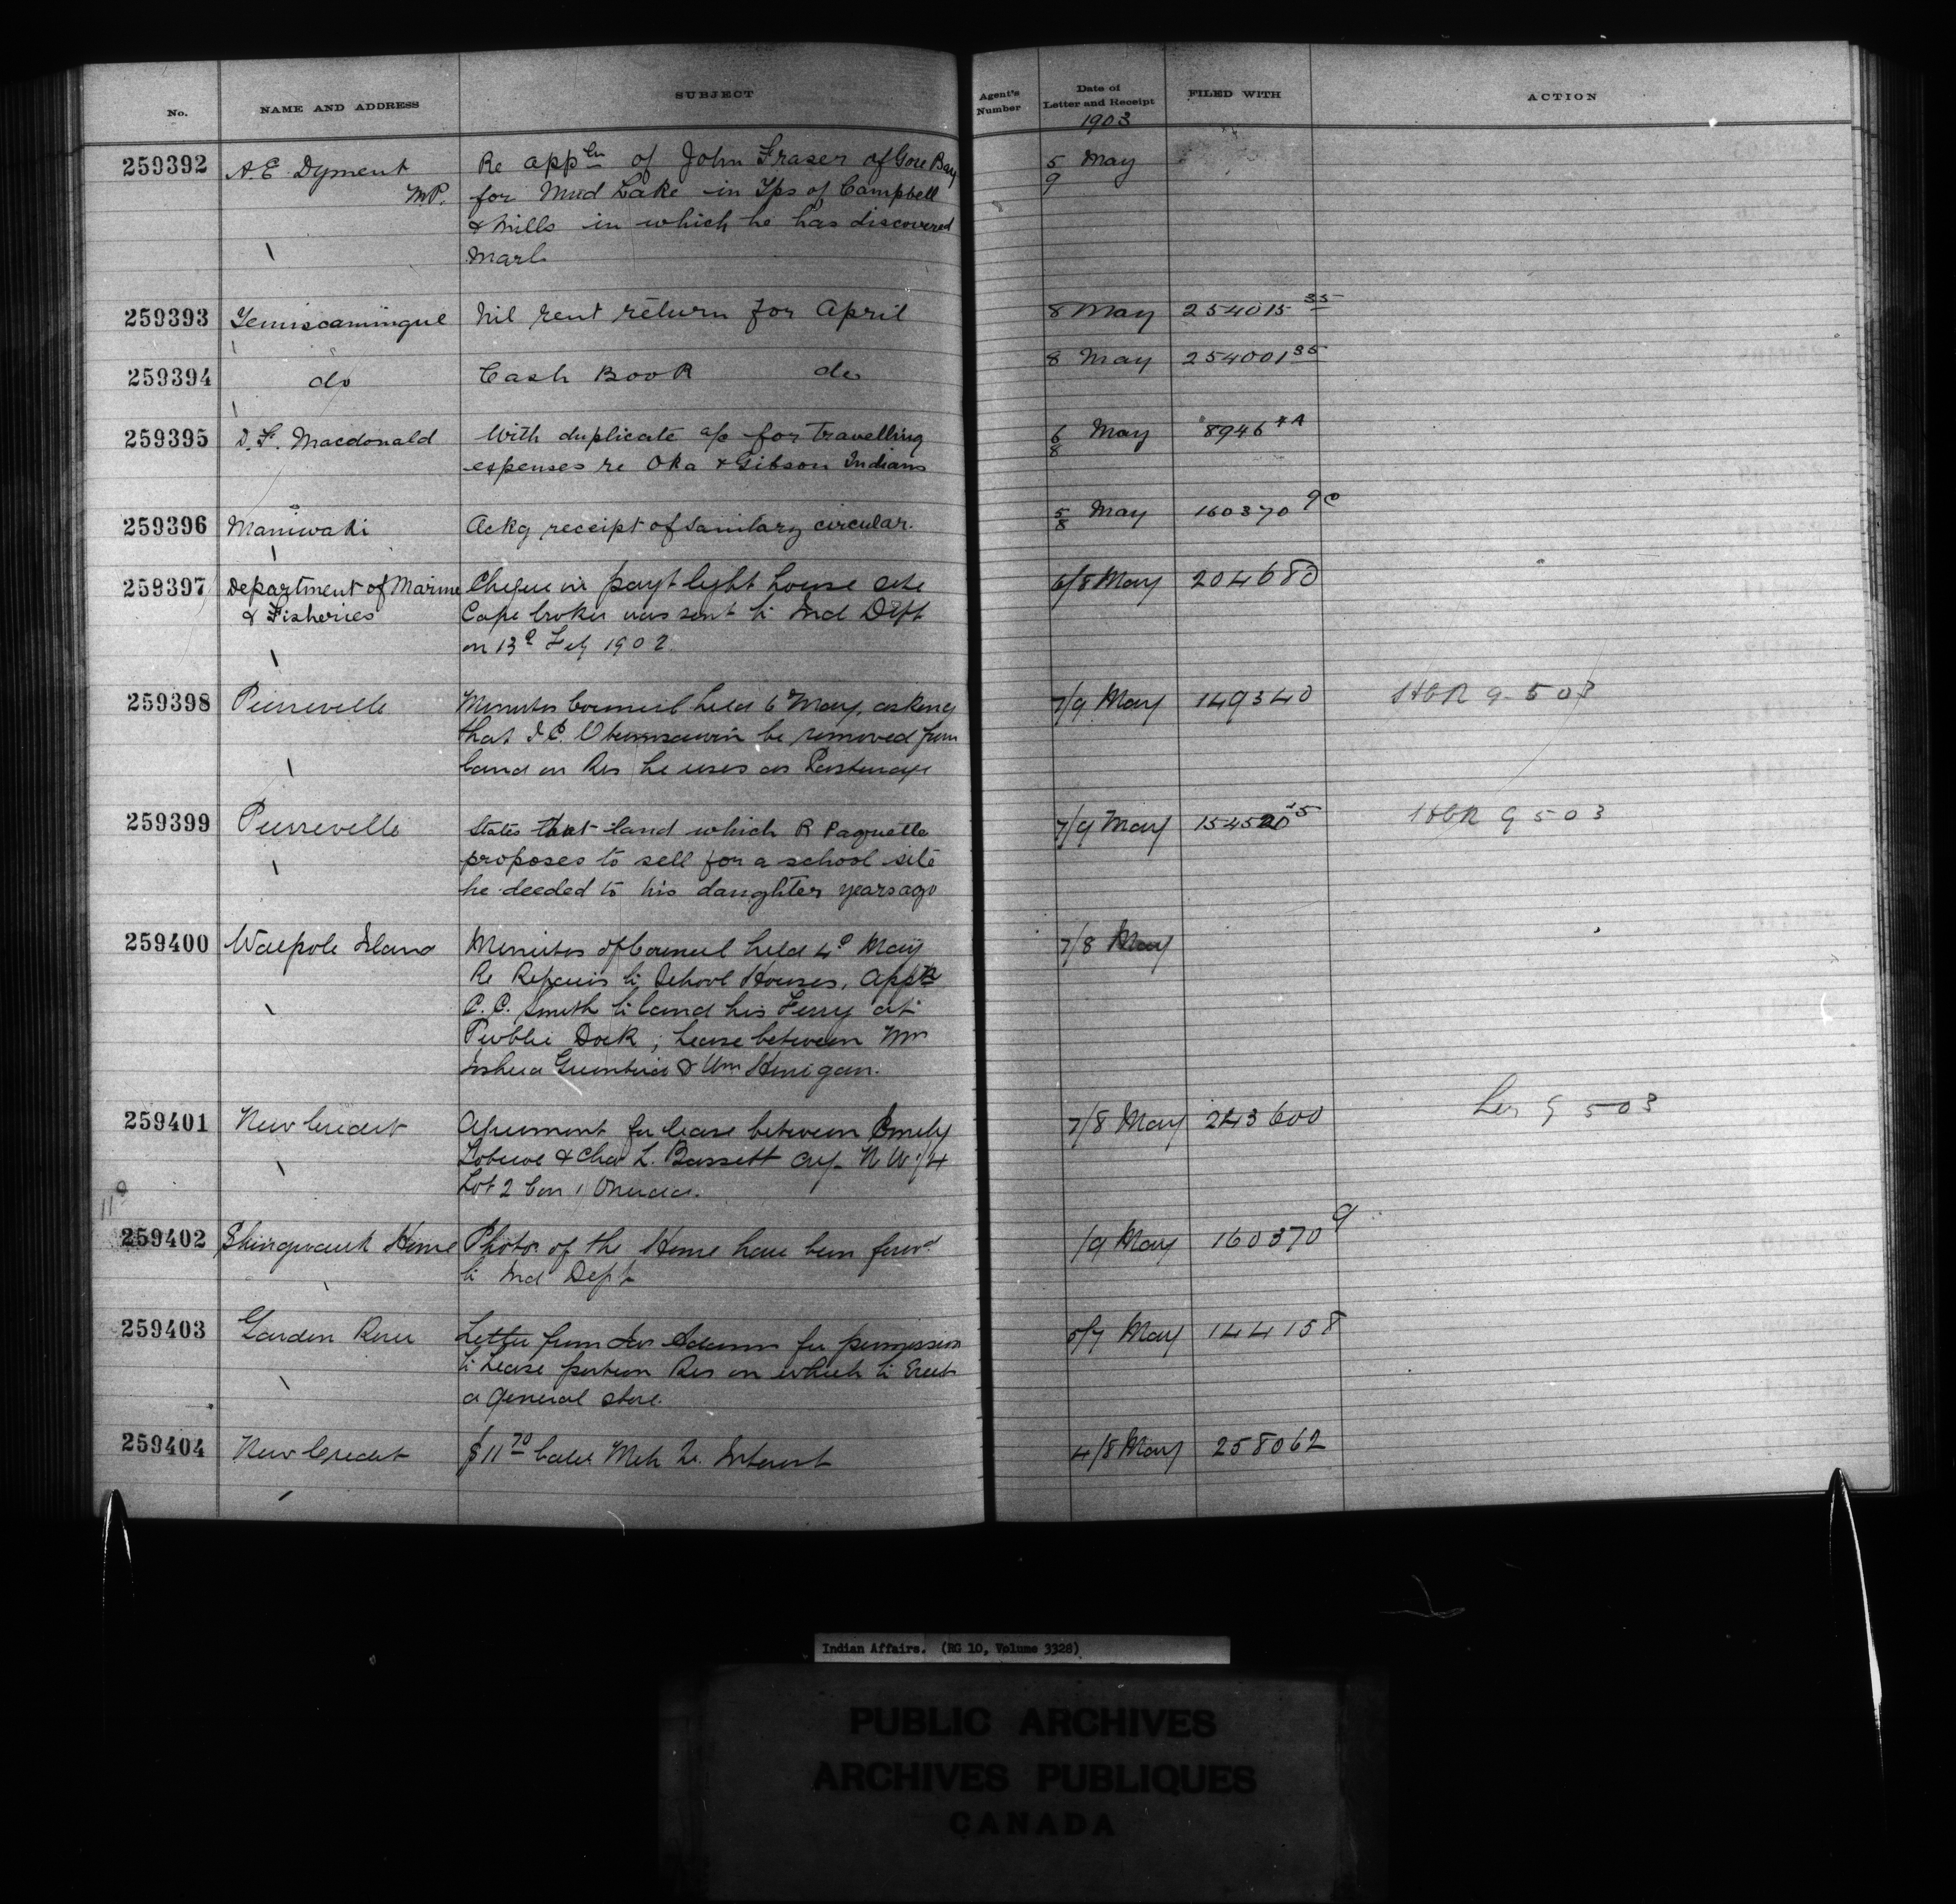 No. NAME AND ADDRESS SUBJECT Agent's Number Date of Letter and Receipt FILED WITH ACTION
1903
259392 A.E. Dyment Re appln of John Fraser of Gore Bay 5 May
M.P. for Mud Lake in Tps of Campbell 9
& Mills in which he has discovered
Marl.
259393 Temiscamingue Nil rent return for April 8 May 254015 35
259394 do Cash Book do 8 May 254001 35
259395 D.F. Macdonald With duplicate a/c for travelling 6 May 8946
expenses re Oka & Gibson Indians 8
259396 Maniwaki Ackg receipt of Sanitary circular. 5 May 160370 9c
8
259397 Department of Marine Cheque in payt light house site 6/8 May 204680
& Fisheries Cape Croker was sent to Ind Dept
on 13th Feby 1902.
259398 Pierreville Minutes Council held 6 May, asking 7/9 May 149340 9-503
that be removed from
land on Res he uses as Pasturage
259399 Pierreville States that land which R Paquette 7/9 May 154520 9 503
proposes to sell for a school site
he deeded to his daughter years ago
259400 Walpole Island Minutes of Council held 4th May 7/8 May
Re Repairs to School Houses, Appln
C.C. Smith to land his Ferry at
Public Dock; Lease between Mrs
Joshua & Wm
259401 New Credit Agreement for lease between Emely 7/8 May 243600 503
& Chas L. Bassett N W 1/4
Lot 2 Con 1 Oneida.
259402 Shingwauk Home Photos of the Home have been forwd /9 May 160370 9
to Ind Dept
259403 Garden River Letter from Adams for permission 5/7 May 144158
to Lease portion Res on which to Erect
a general store.
259404 New Credit $11 70 Interest 4/8 May 258062
Indian Affairs. (RG 10, Volume 3328)
PUBLIC ARCHIVES
ARCHIVES PUBLIQUES
CANADA